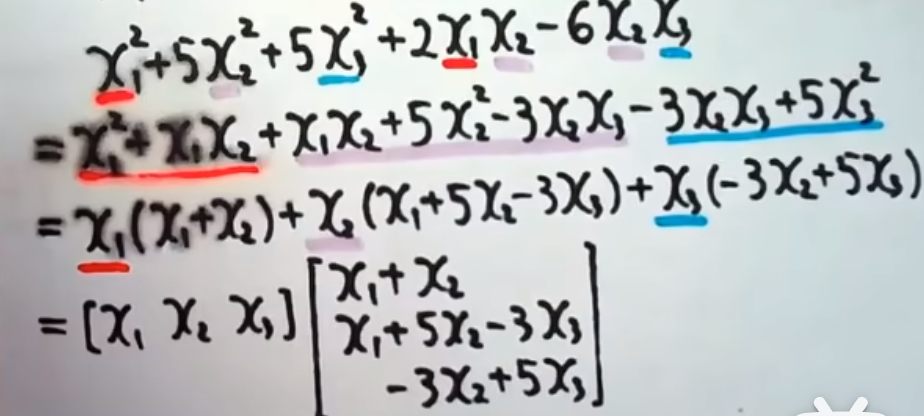 x₁²+5x₂²+5x₃²+2x₁x₂-6x₂x₃
=x₁²+x₁x₂+x₁x₂+5x₂²-3x₂x₃-3x₂x₃+5x₃²
=x₁(x₁+x₂)+x₂(x₁+5x₂-3x₃)+x₃(-3x₂+5x₃)
=[x₁ x₂ x₃][x₁+x₂
x₁+5x₂-3x₃
-3x₂+5x₃]